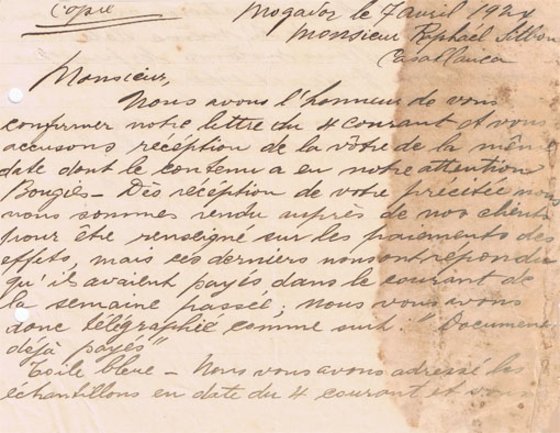 Copie
Mogador le 7 avril 1924
Monsieur Raphaël Sibbon
Casablanca
Monsieur,
Nous avons l'honneur de vous
confirmer notre lettre du 4 courant et vous
accusons recéption de la vôtre de la même
date dont le contenu a eu notre attention
Bougies - Dès recéption de votre precitée nous
nous sommes rendu auprès de nos clients
pour être renseigné sur les paiements des
effets, mais ces derniers nous ont répondu
qu'ils avaient payés dans le courant de
la semaine passée; nous vous avons
donc télégraphié comme suit: "Documents
déjà payés"
Toile bleue - Nous vous avons adressé les
échantillons en date du 4 courant et vous